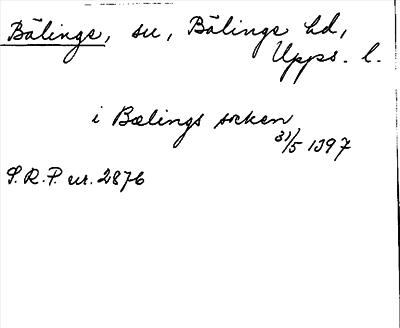 Bälings, sn, Bälings hd,
Upps. l.
i Bælings socken
31/5 1397
S.R.P. nr. 2876